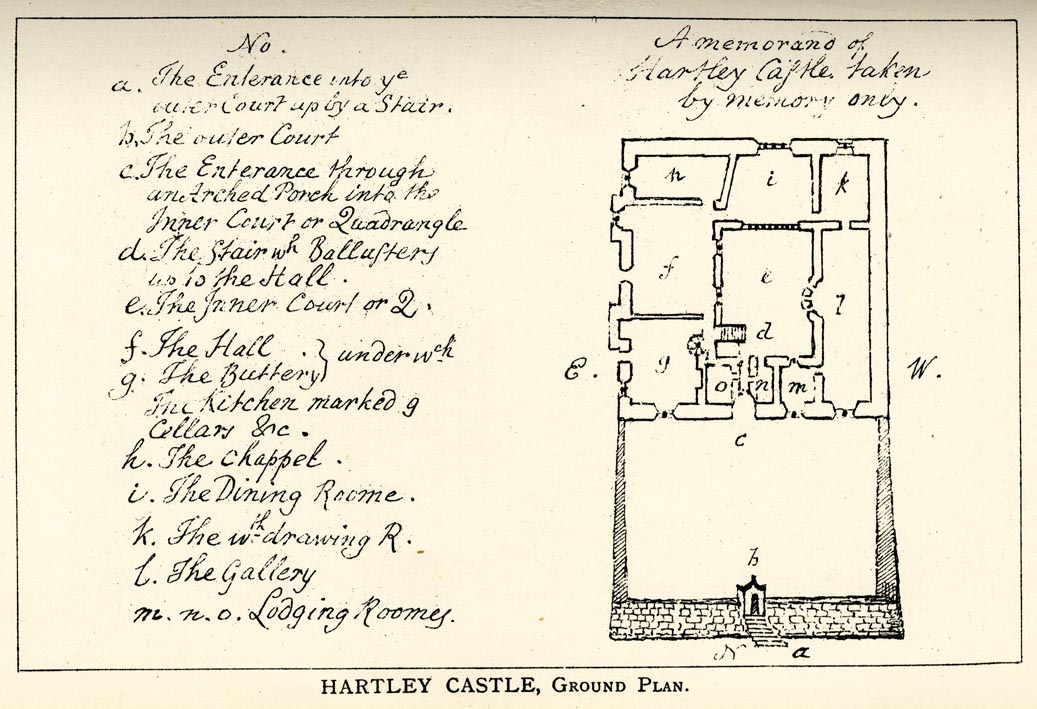 No.
a. The Enterance into yᵉ
outer Court up by a Stair.
b. The outer Court
c. The Enterance through
an Arched Porch into the
Inner Court or Quadrangle
d. The Stair wʰ Ballusters
up to the Hall.
e. The Inner Court or Q.
f. The Hall . } under wᶜʰ
g. The Buttery
The Kitchen marked g
Cellars &c.
h. The Chappel.
i. The Dining Roome.
k. The wᵗʰdrawing R.
l. The Gallery
m. n. o. Lodging Roomes.
A memorand of
Hartley Castle taken
by memory only.
h i k
f e l
d
E. g o n m W.
c
b
N a
HARTLEY CASTLE, GROUND PLAN.